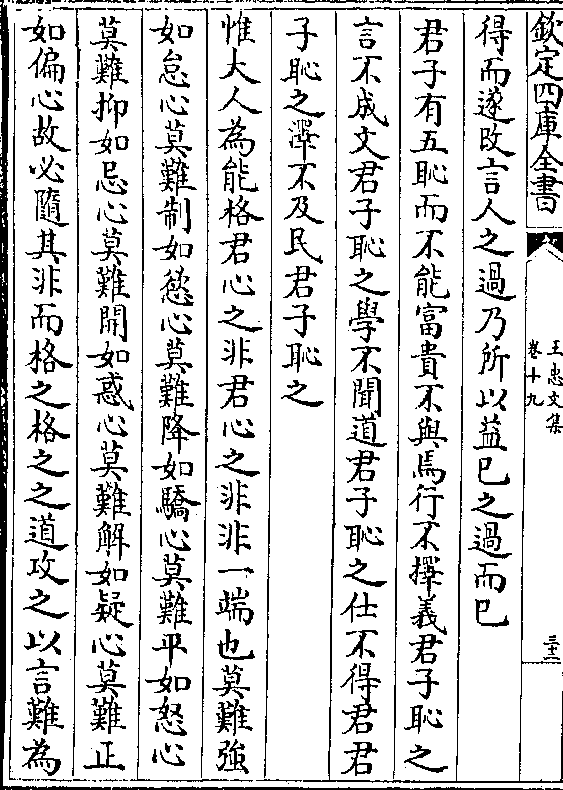 欽定四庫全書
王忠文集
卷十九
三十二
得而遂改言人之過乃所以益已之過而已
君子有五恥而不能富貴不與焉行不擇義君子恥之
言不成文君子恥之學不聞道君子恥之仕不得君君
子恥之澤不及民君子恥之
惟大人為能格君心之非君心之非非一端也莫難強
如怠心莫難制如慾心莫難降如驕心莫難平如怒心
莫難抑如忌心莫難開如惑心莫難解如疑心莫難正
如偏心故必隨其非而格之格之之道攻之以言難為